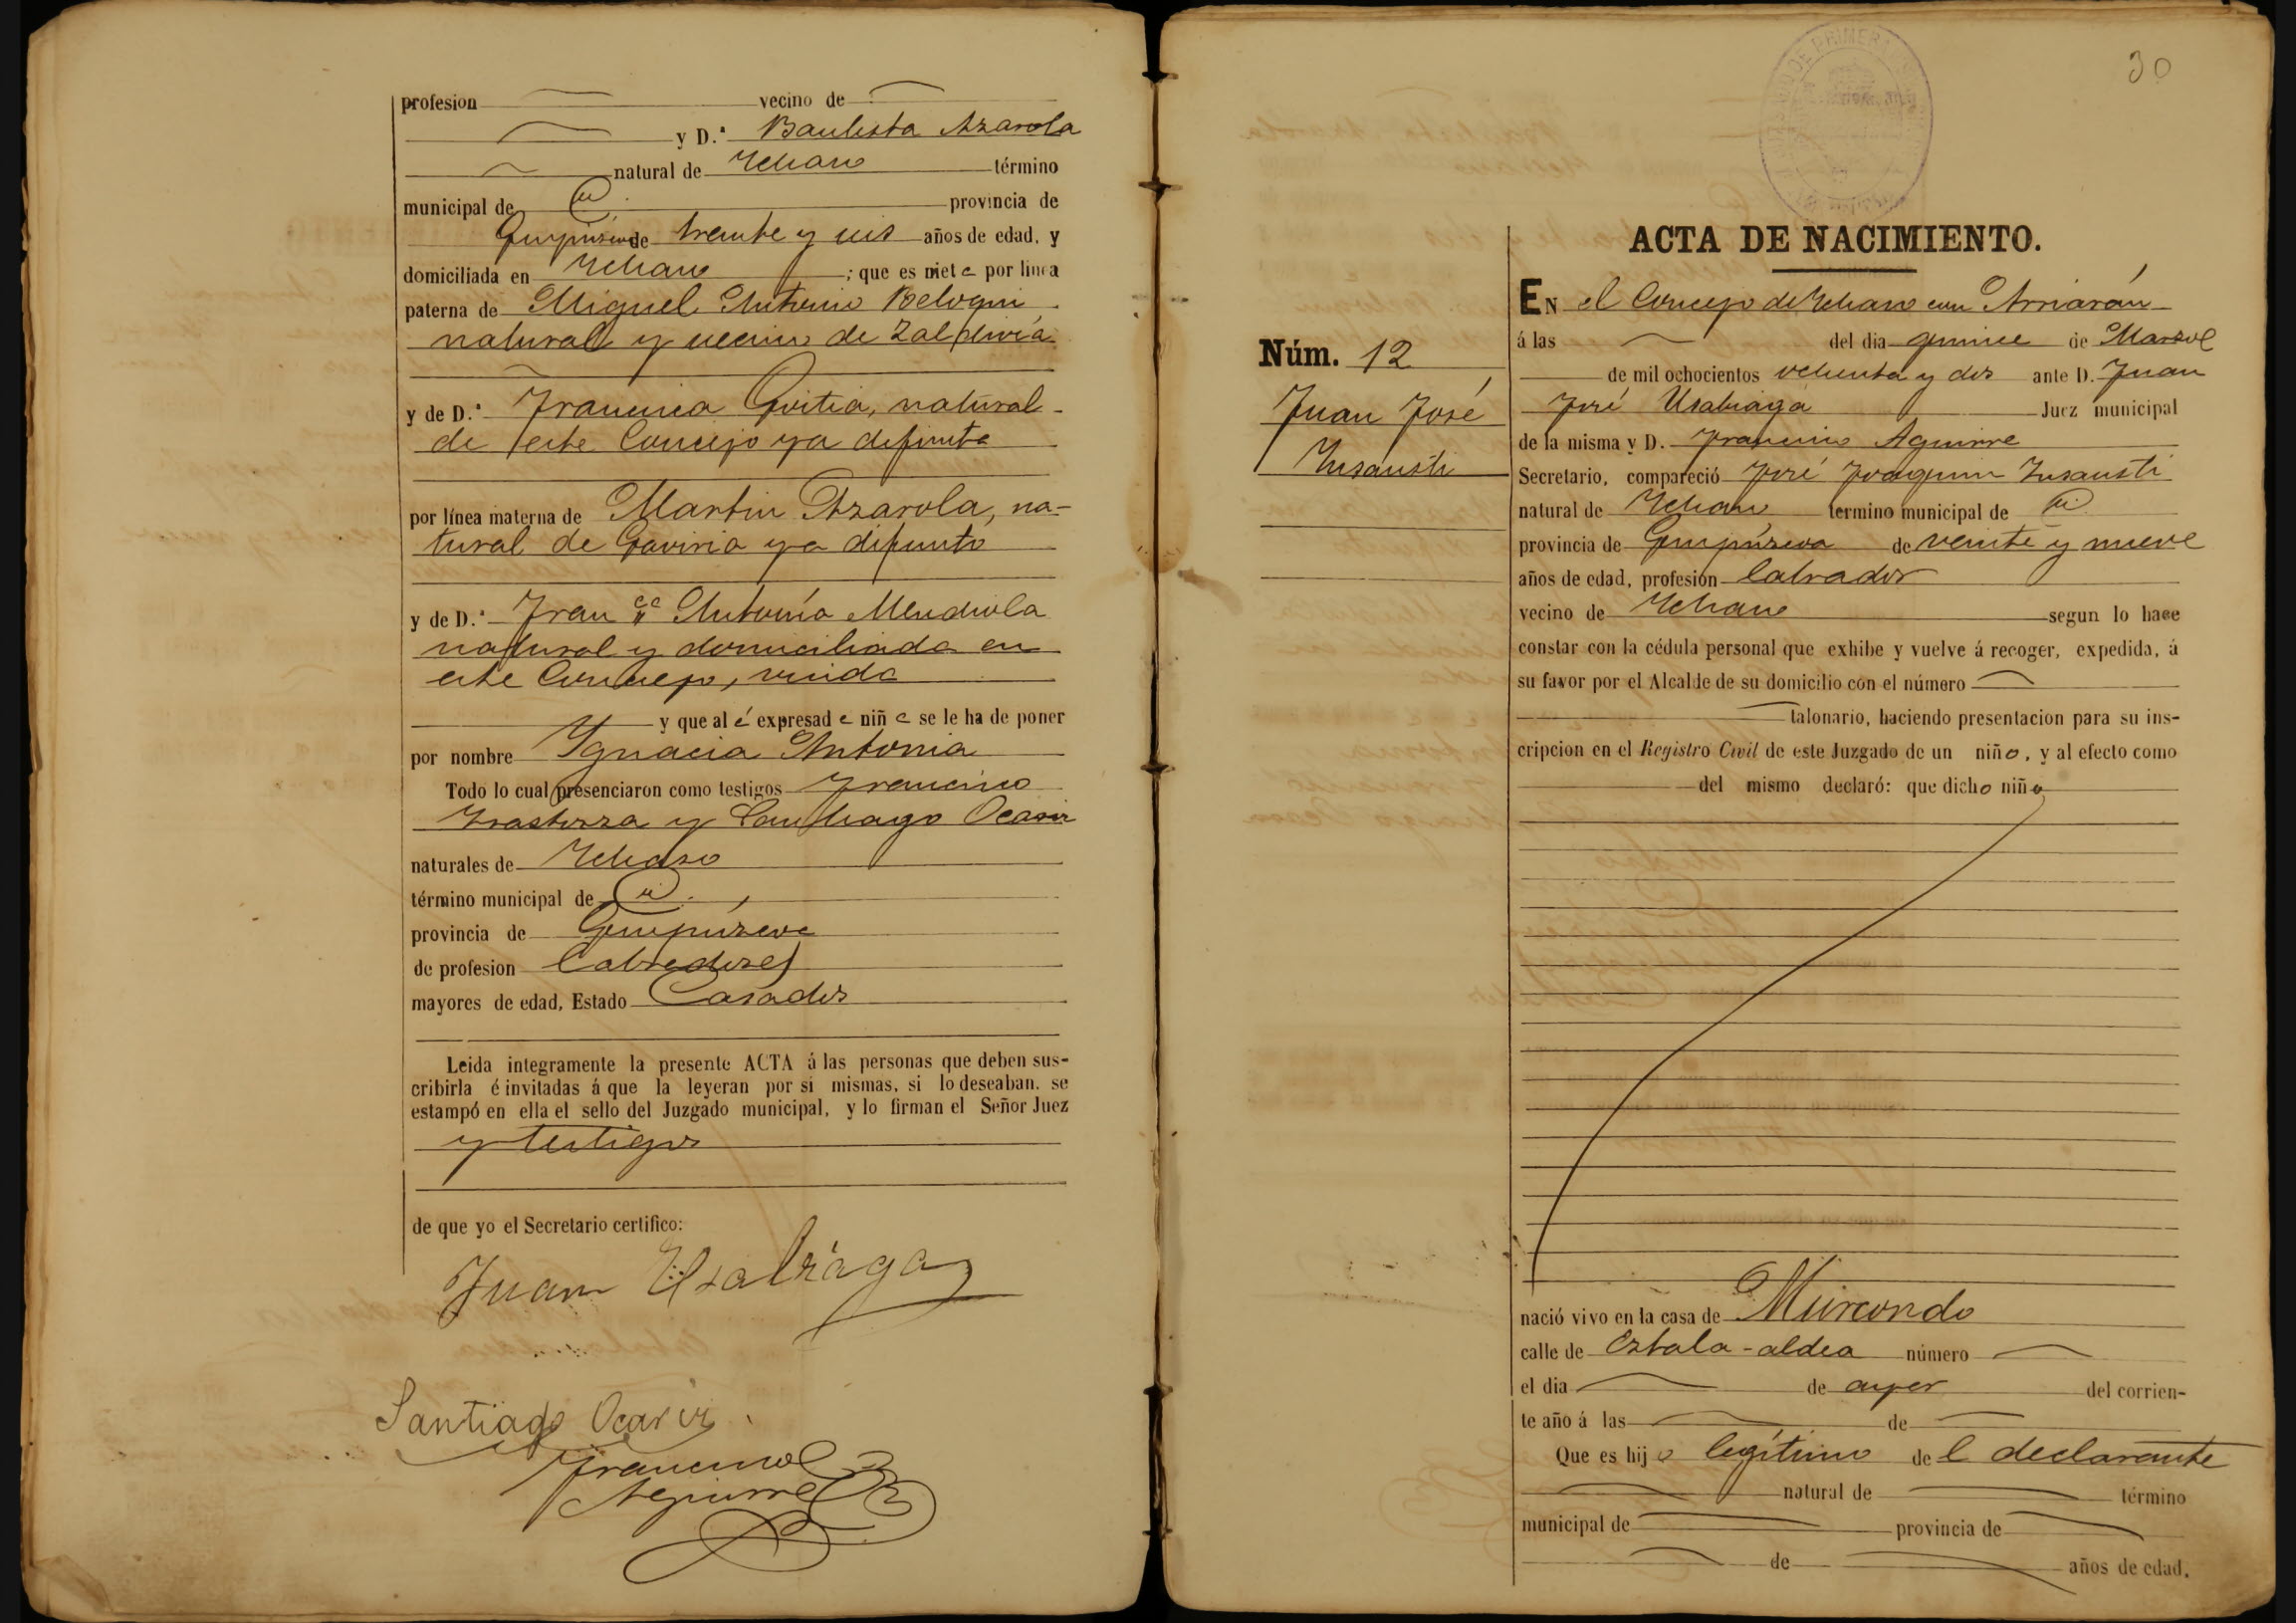 profesion vecino de
y D.ª Bautista Azarola
natural de Ichaso término
municipal de id. provincia de
Guipúzcoa de treinta y seis años de edad, y
domiciliada en Ichaso ; que es nieta por línea
paterna de Miguel Antonio Beloqui
natural y vecino de Zaldivia
y de D.ª Francisca Goitia, natural
de este Concejo ya difunta
por línea materna de Martin Azarola, na-
tural de Gaviria ya difunto
y de D.ª Fran.ca Antonia Mendiola
natural y domiciliada en
este Concejo, viuda
y que al é expresad a niñ a se le ha de poner
por nombre Ygnacia Antonia
Todo lo cual presenciaron como testigos Francisco
Irastorza y Santiago Ocariz
naturales de Ichaso
término municipal de id.
provincia de Guipúzcoa
de profesion Labradores
mayores de edad, Estado Casados
Leida integramente la presente ACTA á las personas que deben sus-
cribirla é invitadas á que la leyeran por si mismas, si lo deseaban. se
estampó en ella el sello del Juzgado municipal, y lo firman el Señor Juez
y testigos
de que yo el Secretario certifico:
Juan Usabiaga
Santiago Ocariz
Francisco
Aguirre
30
ACTA DE NACIMIENTO.
EN el Concejo de Ichaso con Arriarán
á las del dia quince de Marzo
de mil ochocientos ochenta y dos ante D. Juan
José Usabiaga Juez municipal
de la misma y D. Francisco Aguirre
Secretario, compareció José Joaquin Insausti
natural de Ichaso termino municipal de id
provincia de Guipúzcoa de veinte y nueve
años de edad, profesión labrador
vecino de Ichaso segun lo hace
constar con la cédula personal que exhibe y vuelve á recoger, expedida, á
su favor por el Alcalde de su domicilio con el número
talonario, haciendo presentacion para su ins-
cripcion en el Registro Civil de este Juzgado de un niño, y al efecto como
del mismo declaró: que dicho niño
Núm. 12
Juan José
Insausti
nació vivo en la casa de Murcondo
calle de Oztala-aldea número
el dia de ayer del corrien-
te año á las de
Que es hij o legítimo de l declarante
natural de término
municipal de provincia de
de años de edad.